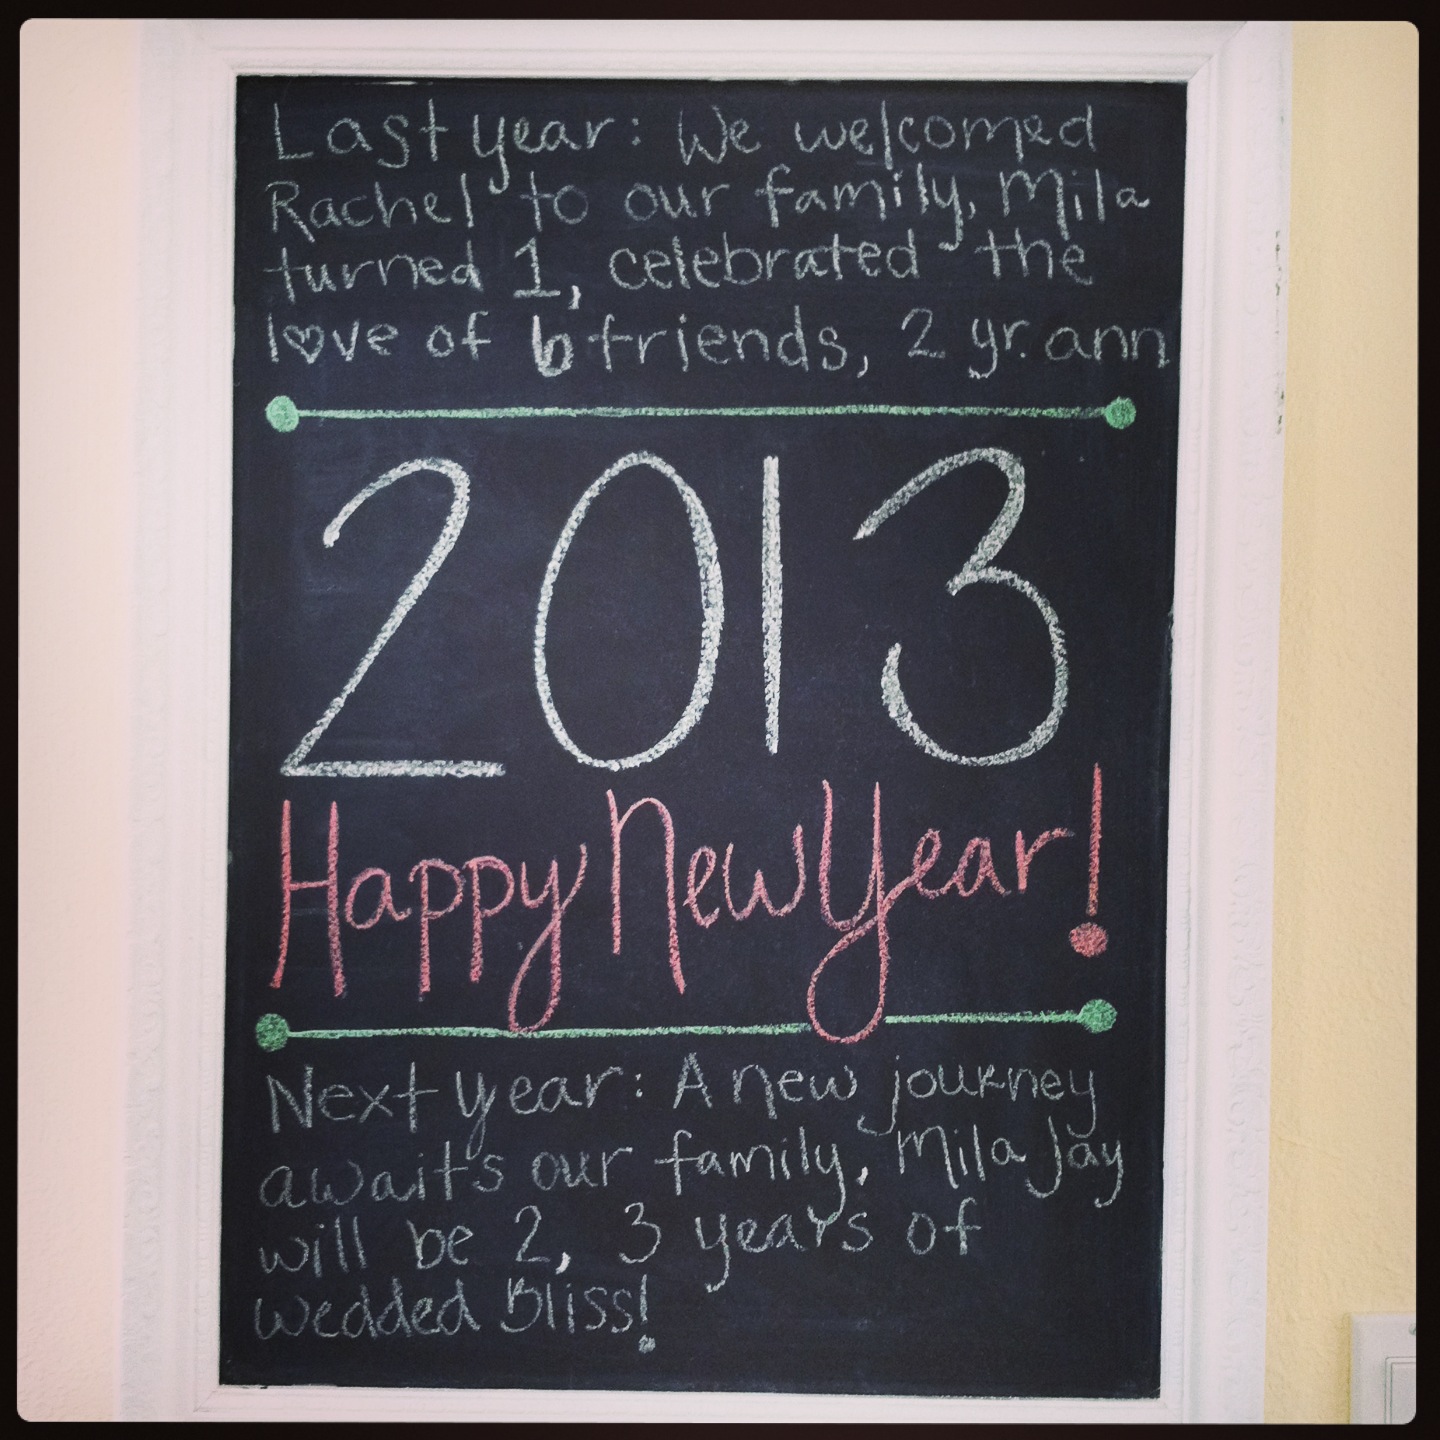 Last year: We welcomed
Rachel to our family, Mila
turned 1, celebrated the
love of 6 friends, 2 yr. ann
2013
Happy New Year!
Next year: A new journey
awaits our family, Mila Jay
will be 2, 3 years of
wedded Bliss!